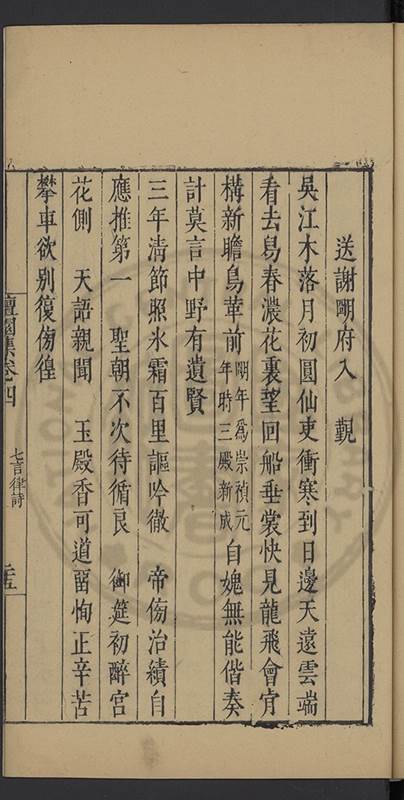 送謝明府入　覲
吳江木落月初圓仙吏衝寒到日邊天遠雲端
看去舄春濃花裏望回船垂裳快見龍飛會肯
構新瞻鳥革前明年爲崇禎元年時三殿新成自媿無能偕奏
計莫言中野有遺賢
三年清節照氷霜百里謳吟徹　帝傍治績自
應推第一　聖朝不次待循良　御筵初醉宮
花側　天語親聞　玉殿香可道留恂正辛苦
攀車欲別復傍徨
集卷四
七言律詩